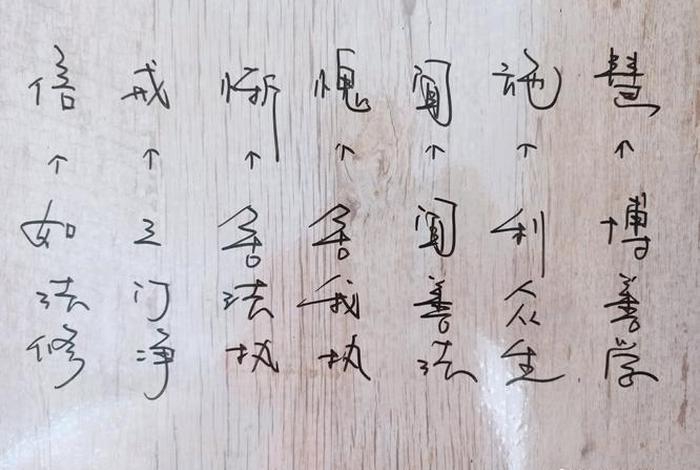 信↑如法修
戒↑三门净
惭↑舍法执
愧↑舍我执
闻↑闻善法
施↑利众生
慧↑博善学